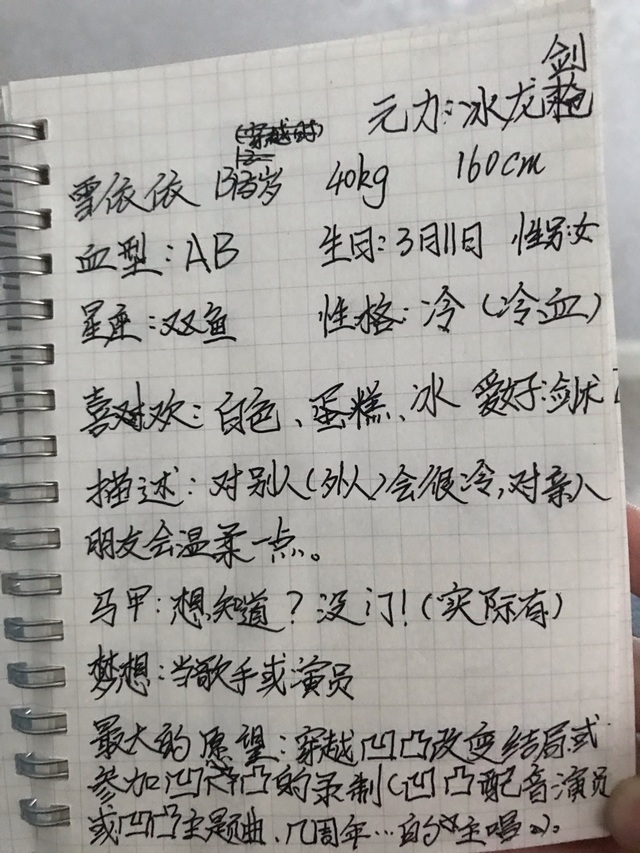 剑
元力:冰龙枪
(穿越时)
雪依依 13岁 40kg 160cm
血型:AB 生日:3月11日 性别:女
星座:双鱼 性格:冷(冷血)
喜欢:白色、蛋糕、冰 爱好:剑术
描述:对别人(外人)会很冷,对亲人
朋友会温柔一点。
马甲:想知道?没门!(实际有)
梦想:当歌手或演员
最大的愿望:穿越凹凸改变结局或
参加凹凸的录制(凹凸配音演员
或凹凸主题曲、几周年…的主唱)。